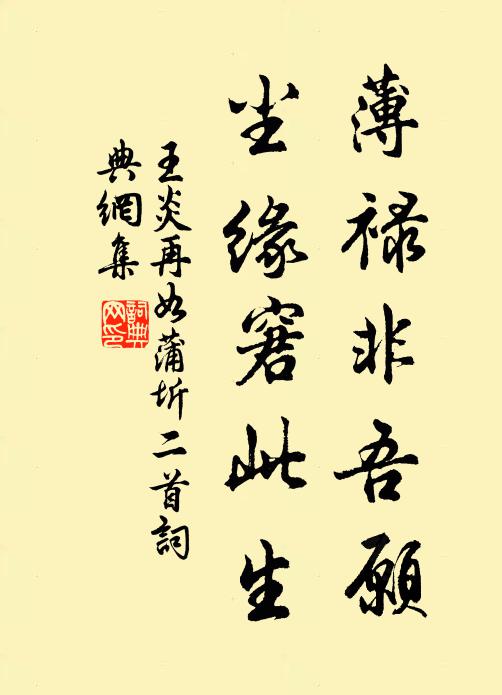 薄祿非吾願
尘緣窘此生
王炎再如蒲圻二首詞
典網集
詞典
网印